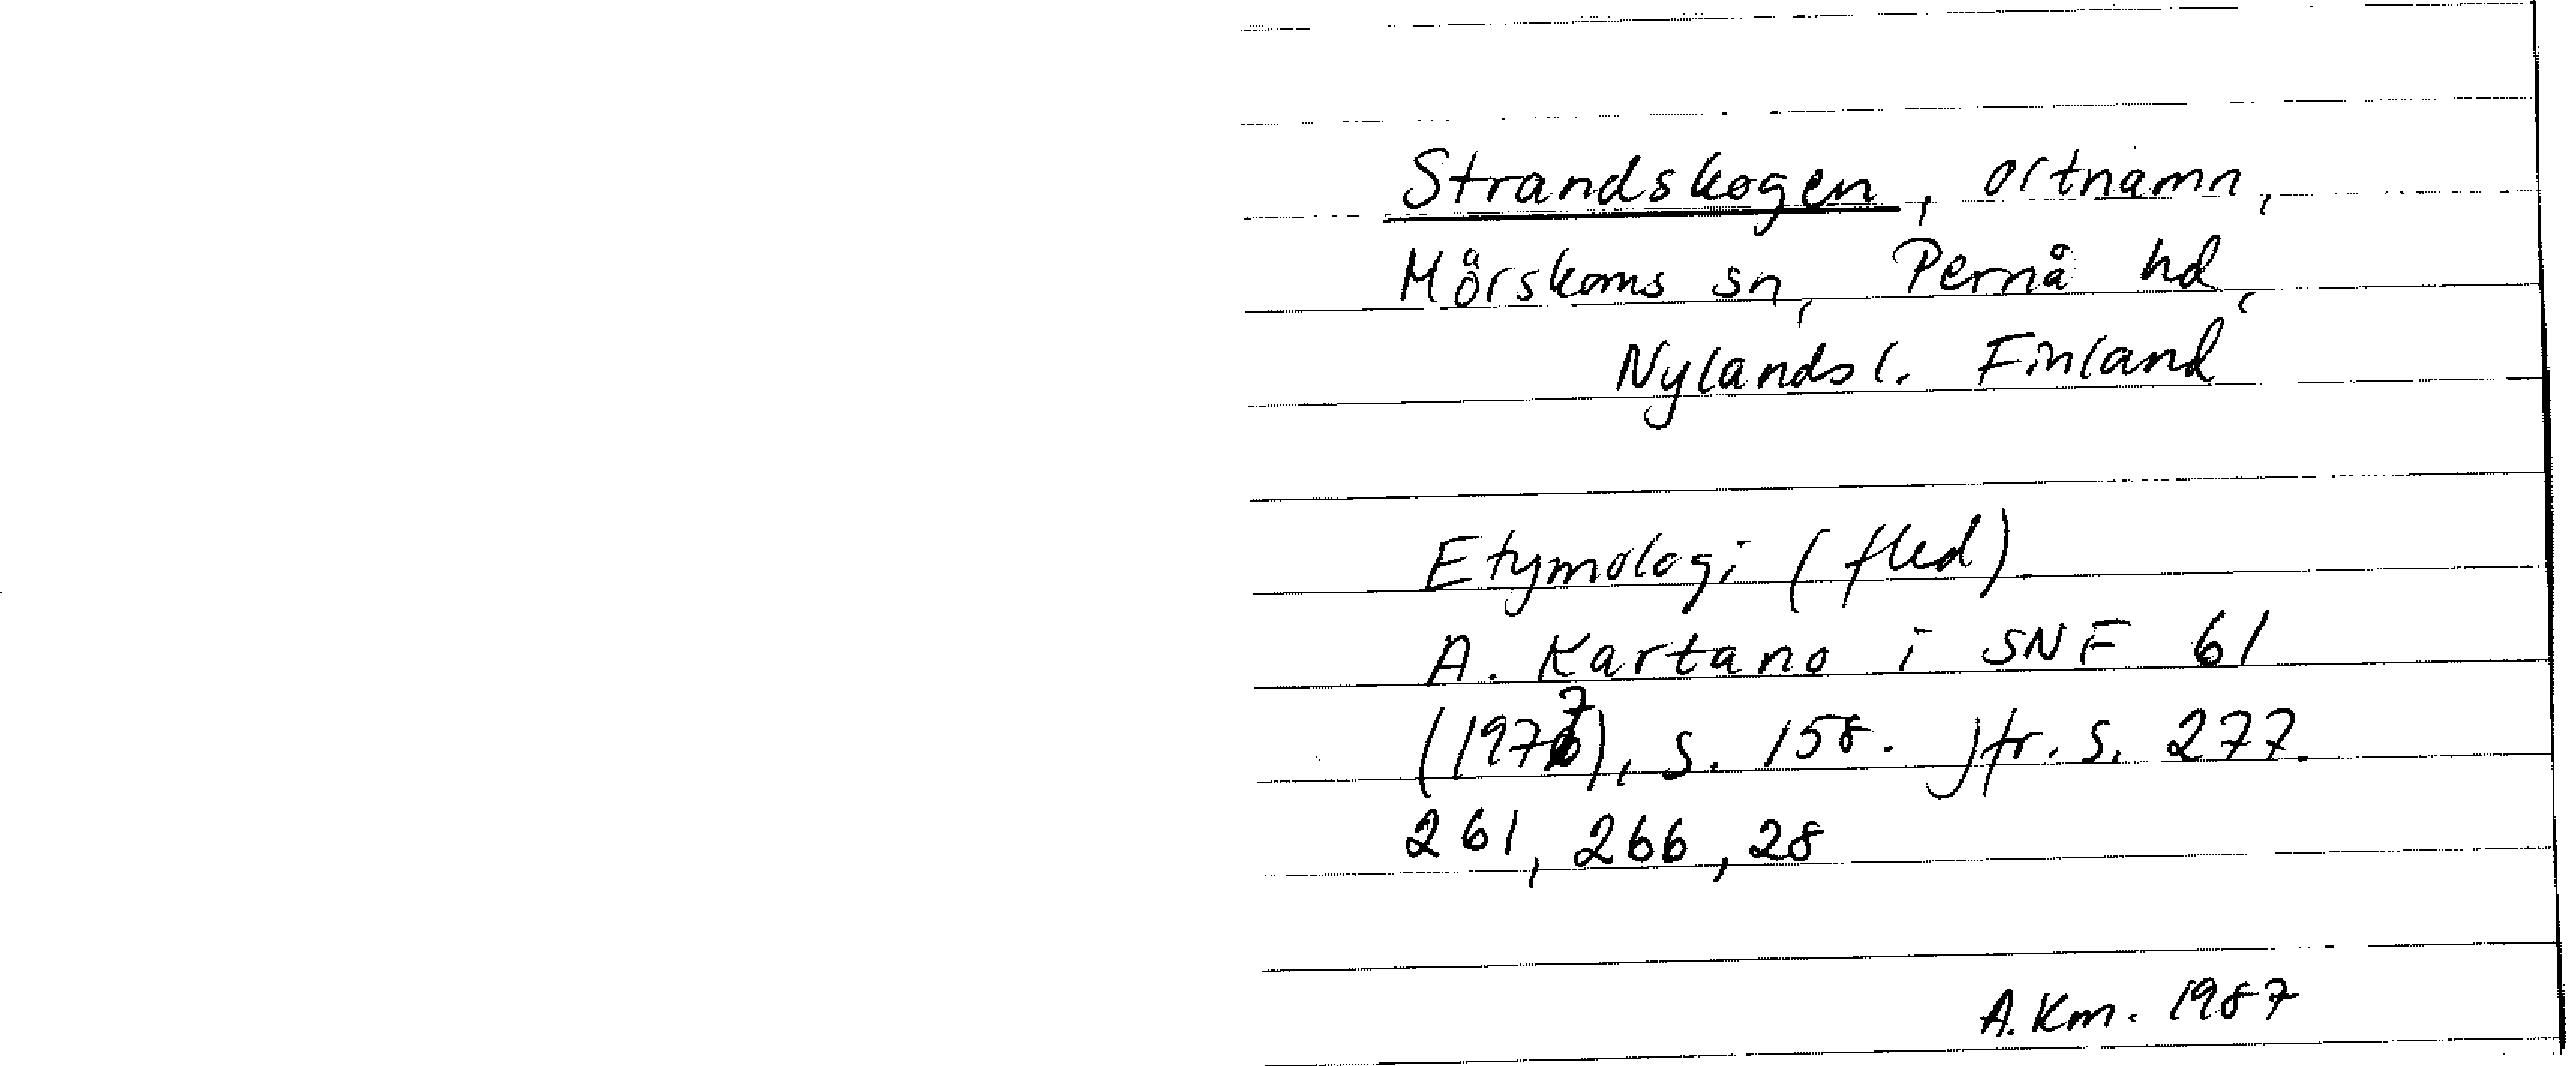 Strandskogen, ortnamn,
Mörskoms sn, Pernå hd,
Nylands l. Finland
Etymologi (fled)
A. Kartano i SNF 61
(1977), s. 158. Jfr. s. 277.
261, 266, 28
A. Km. 1987